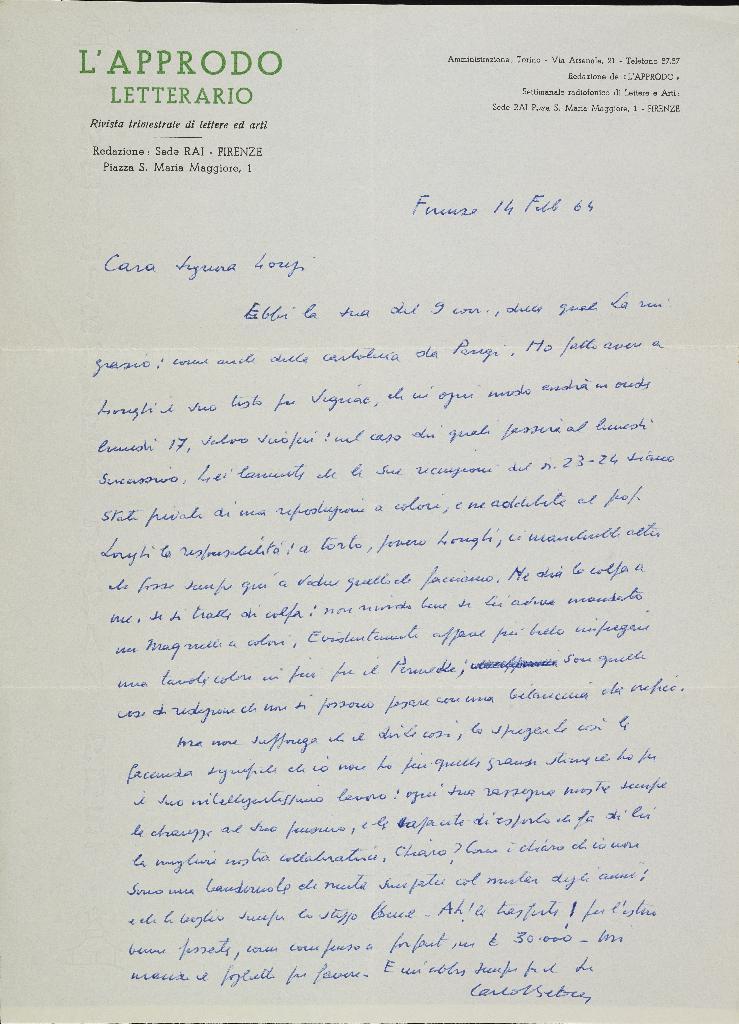 L'APPRODO
LETTERARIO
Rivista trimestrale di lettere ed arti
Redazione: Sede RAI - FIRENZE
Piazza S. Maria Maggiore, 1
Amministrazione, Torino - Via Arsenale, 21 - Telefono 57.57
Redazione de «L'APPRODO»
Settimanale radiofonico di Lettere e Arti:
Sede RAI P.zza S. Maria Maggiore, 1 - FIRENZE
Firenze 14 Febb 64
Cara Signora
Ebbi la sua del 9 corr., della quale La rin
grazio: come anche della cartolina da Parigi. Ho fatto avere a
Longhi il suo testo per Signac, che in ogni modo andrà in onda
lunedì 17, salvo scioperi: nel caso dei quali passerà al lunedì
successivo. Lei lamenta che le Sue recensioni del n. 23-24 siano
state private di una riproduzione a colori, e ne addebita al prof.
Longhi la responsabilità: a torto, povero Longhi, ci mancherebbe altro
che fosse sempre qui a vedere quello che facciamo. Ne dia la colpa a
me, se si tratta di colpa: non ricordo bene se Lei aveva mandato
un Magnelli a colori. Evidentemente apparve più bello impiegare
una tavola colori in più per il ; son quelle
cose di redazione che non si possono pesare con una bilancina da orefice.
Ma non supponga che il dirle così, lo spiegarle così la
faccenda significhi che io non ho più quella grande stima che ho per
il Suo intelligentissimo lavoro: ogni sua rassegna mostra sempre
la chiarezza del Suo pensiero, e la capacità di esporlo che fa di Lei
la migliore nostra collaboratrice. Chiaro? Come è chiaro che io non
sono una banderuola che muta simpatie col mutar degli anni:
e che le voglio sempre lo stesso bene. Ah! le trasferte! per l'estero
venne fissata, come compenso a forfait in £ 30.000 - Mi
mandi il foglietto per favore. E mi abbia sempre per il Su
Carlo Betocchi